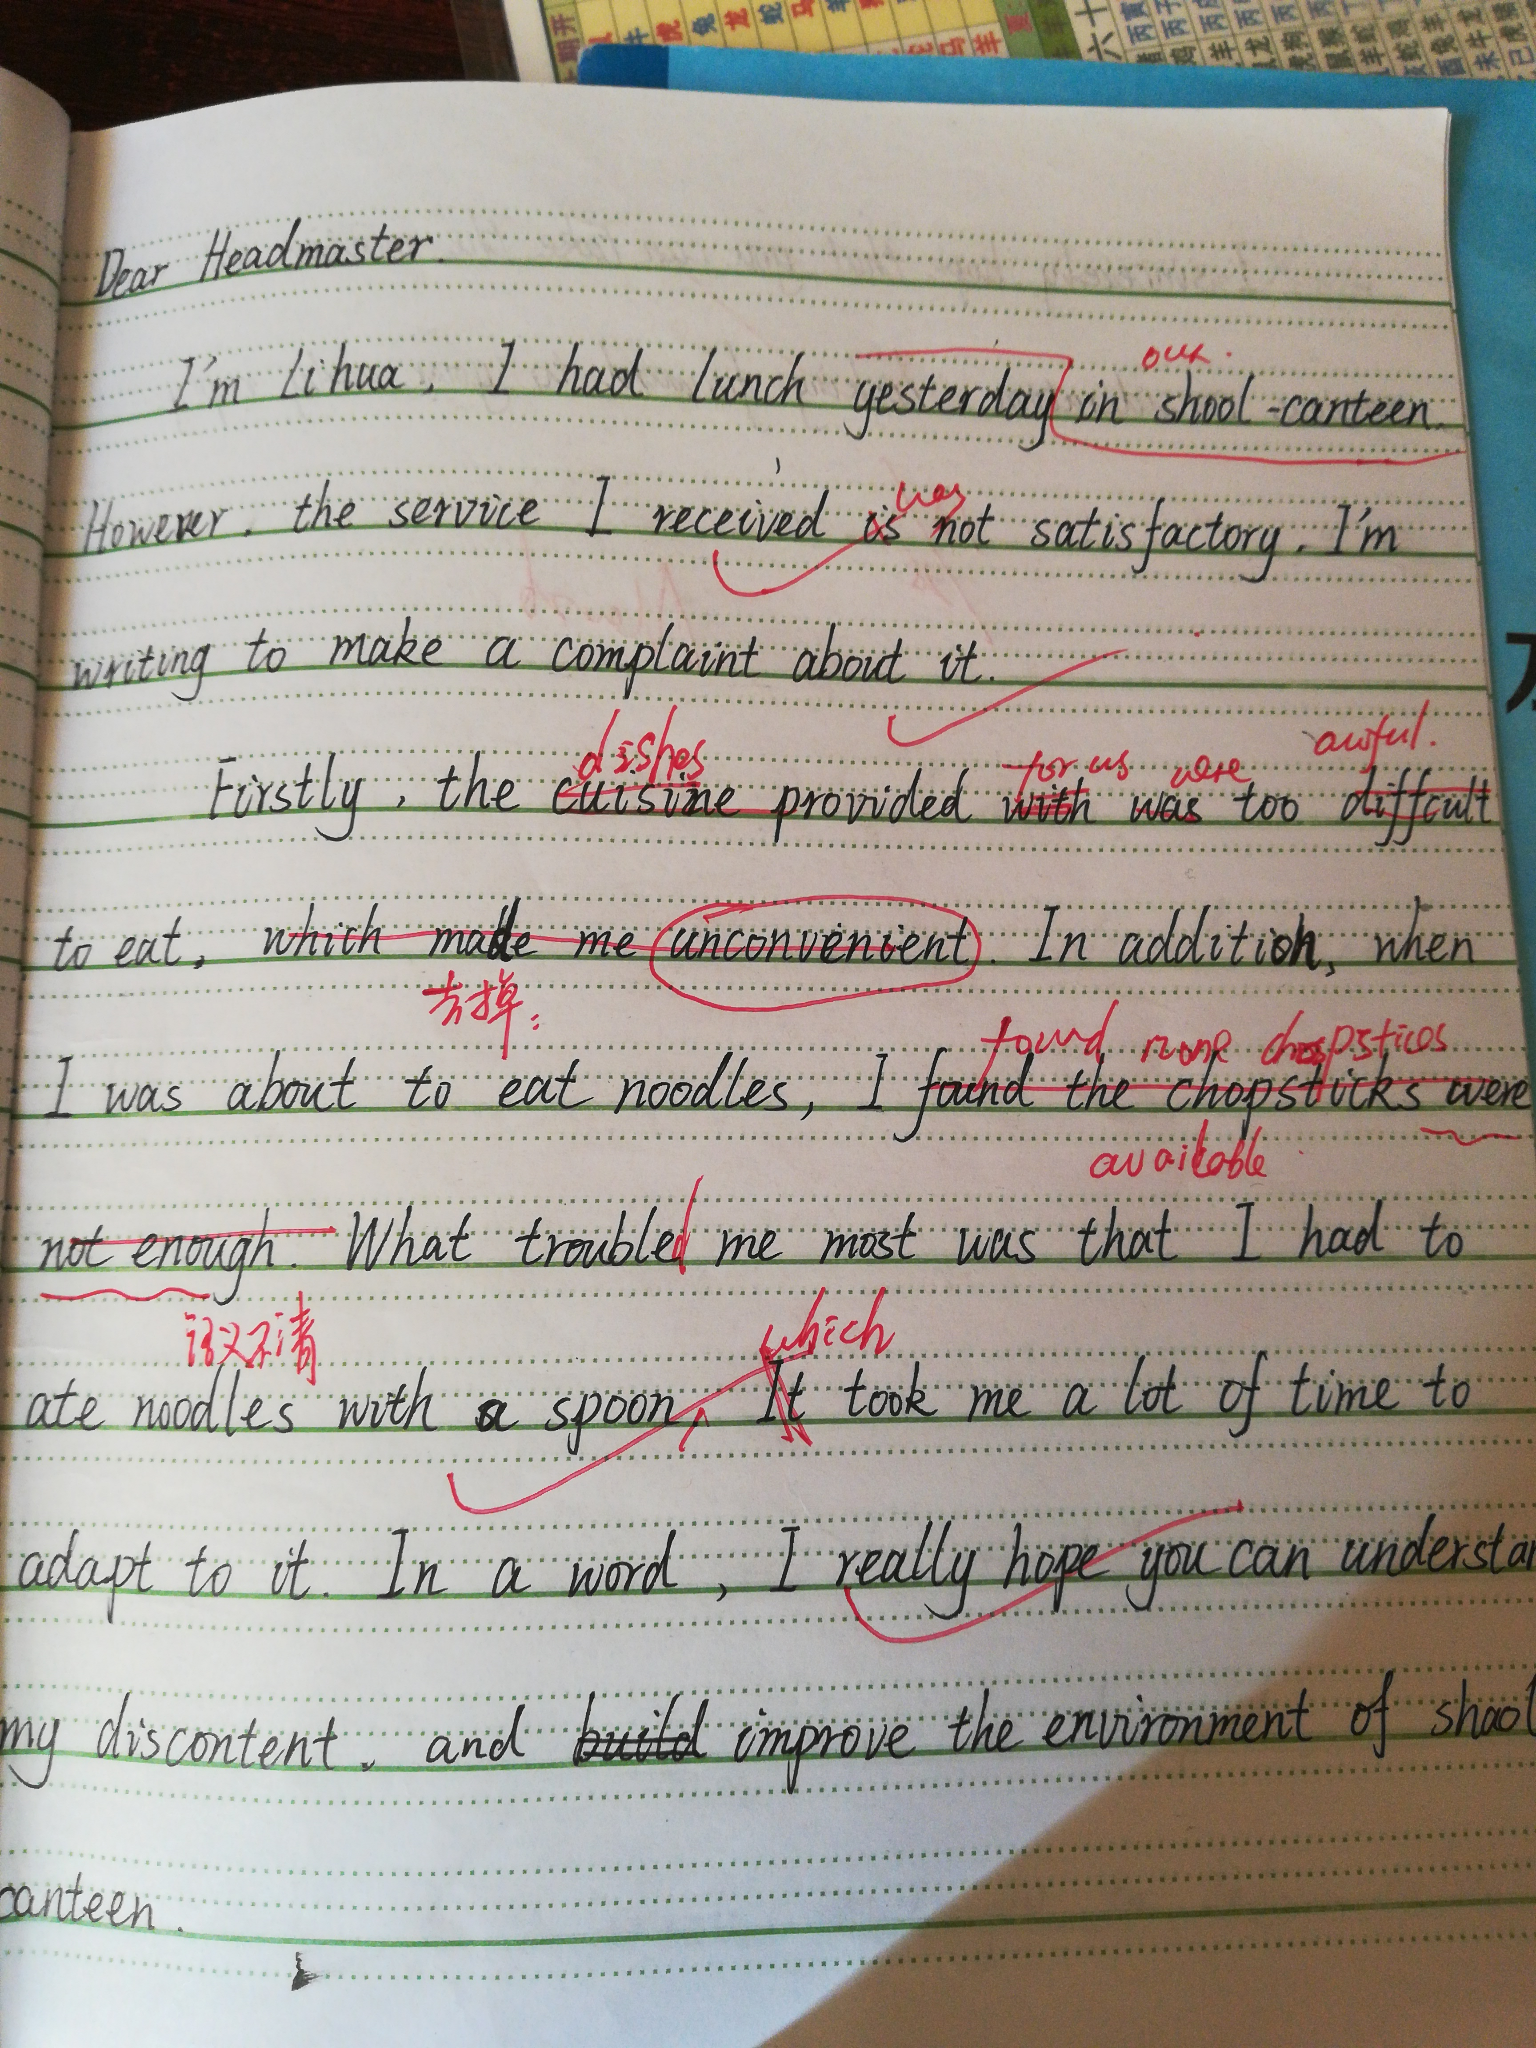 Dear Headmaster.
our.
I'm Lihua. I had lunch yesterday in shool-canteen.
was
However, the service I received is not satisfactory. I'm
writing to make a complaint about it.
dishes for us were awful.
Firstly, the cuisine provided with was too difficult
to eat, which made me unconvenient. In addition, when
去掉:
found none chopsticks
I was about to eat noodles, I found the chopsticks were
available
not enough. What troubled me most was that I had to
语义不清 which
ate noodles with a spoon, It took me a lot of time to
adapt to it. In a word, I really hope you can understan
my discontent, and build improve the environment of shool
canteen.